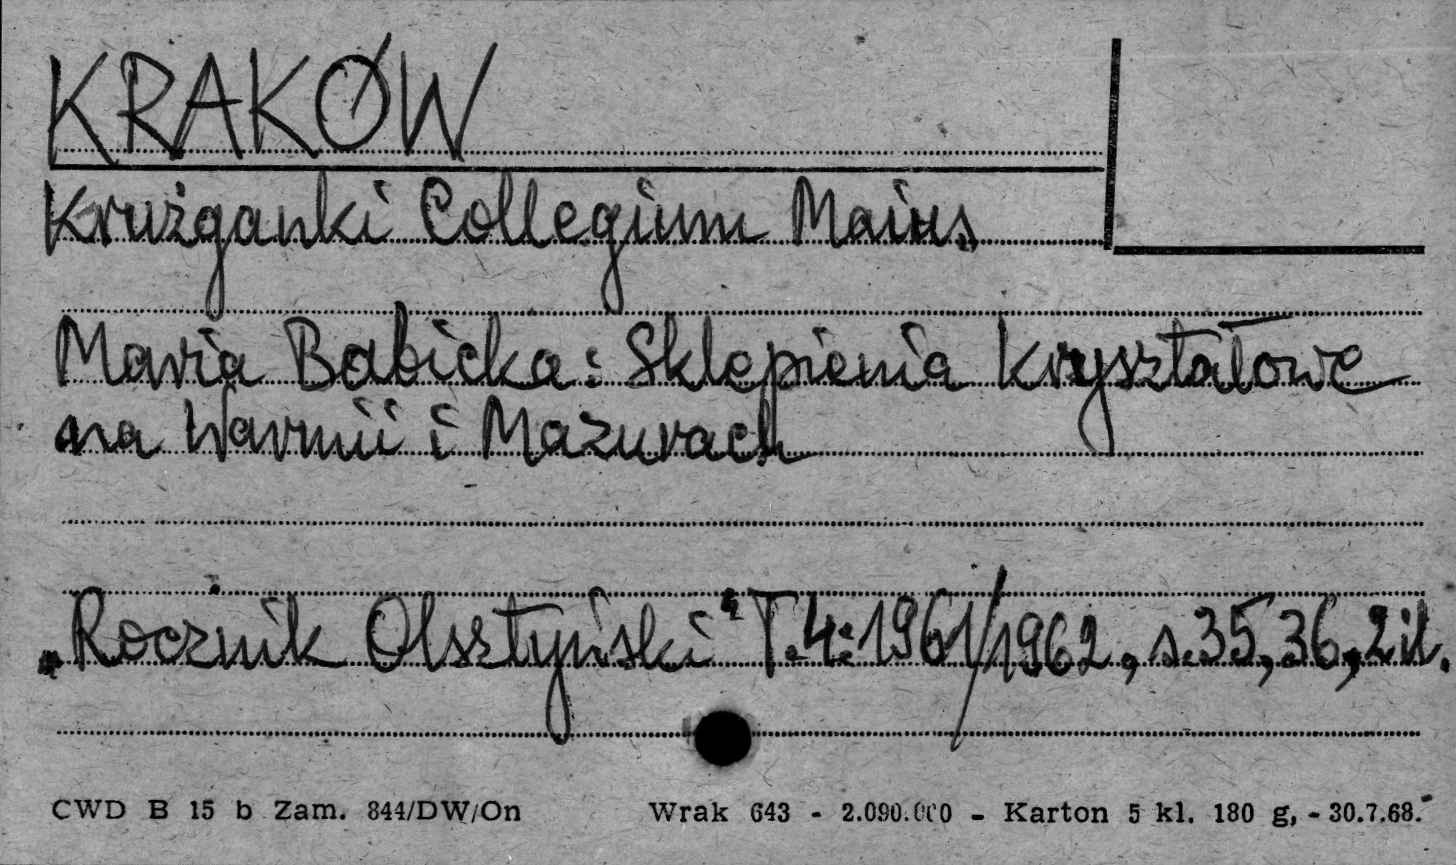 KRAKÓW
Krużganki Collegium Maius
Maria Babicka: Sklepienia Kryształowe
na Warmii i Mazurach
„Rocznik Olsztyński" T.4:1961/1962, s.35,36,2il.
CWD B 15 b Zam. 844/DW/On Wrak 643 - 2.090.000 - Karton 5 kl. 180 g, - 30.7.68.